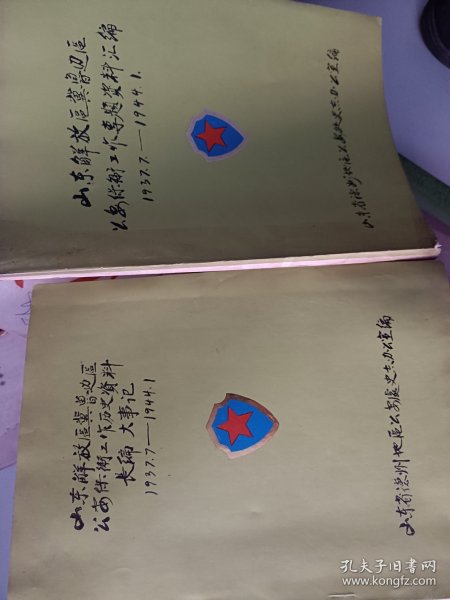 山东解放區冀鲁边區
公安保衛工作专题资料汇编
1937.7——1944.1.
山东省德州地區公安處史志办公室编
山东解放區冀鲁边區
公安保衛工作历史资料
长编 大事记
1937.7——1944.1
山东省德州地區公安處史志办公室编
孔夫子旧书网
www.kongfz.com